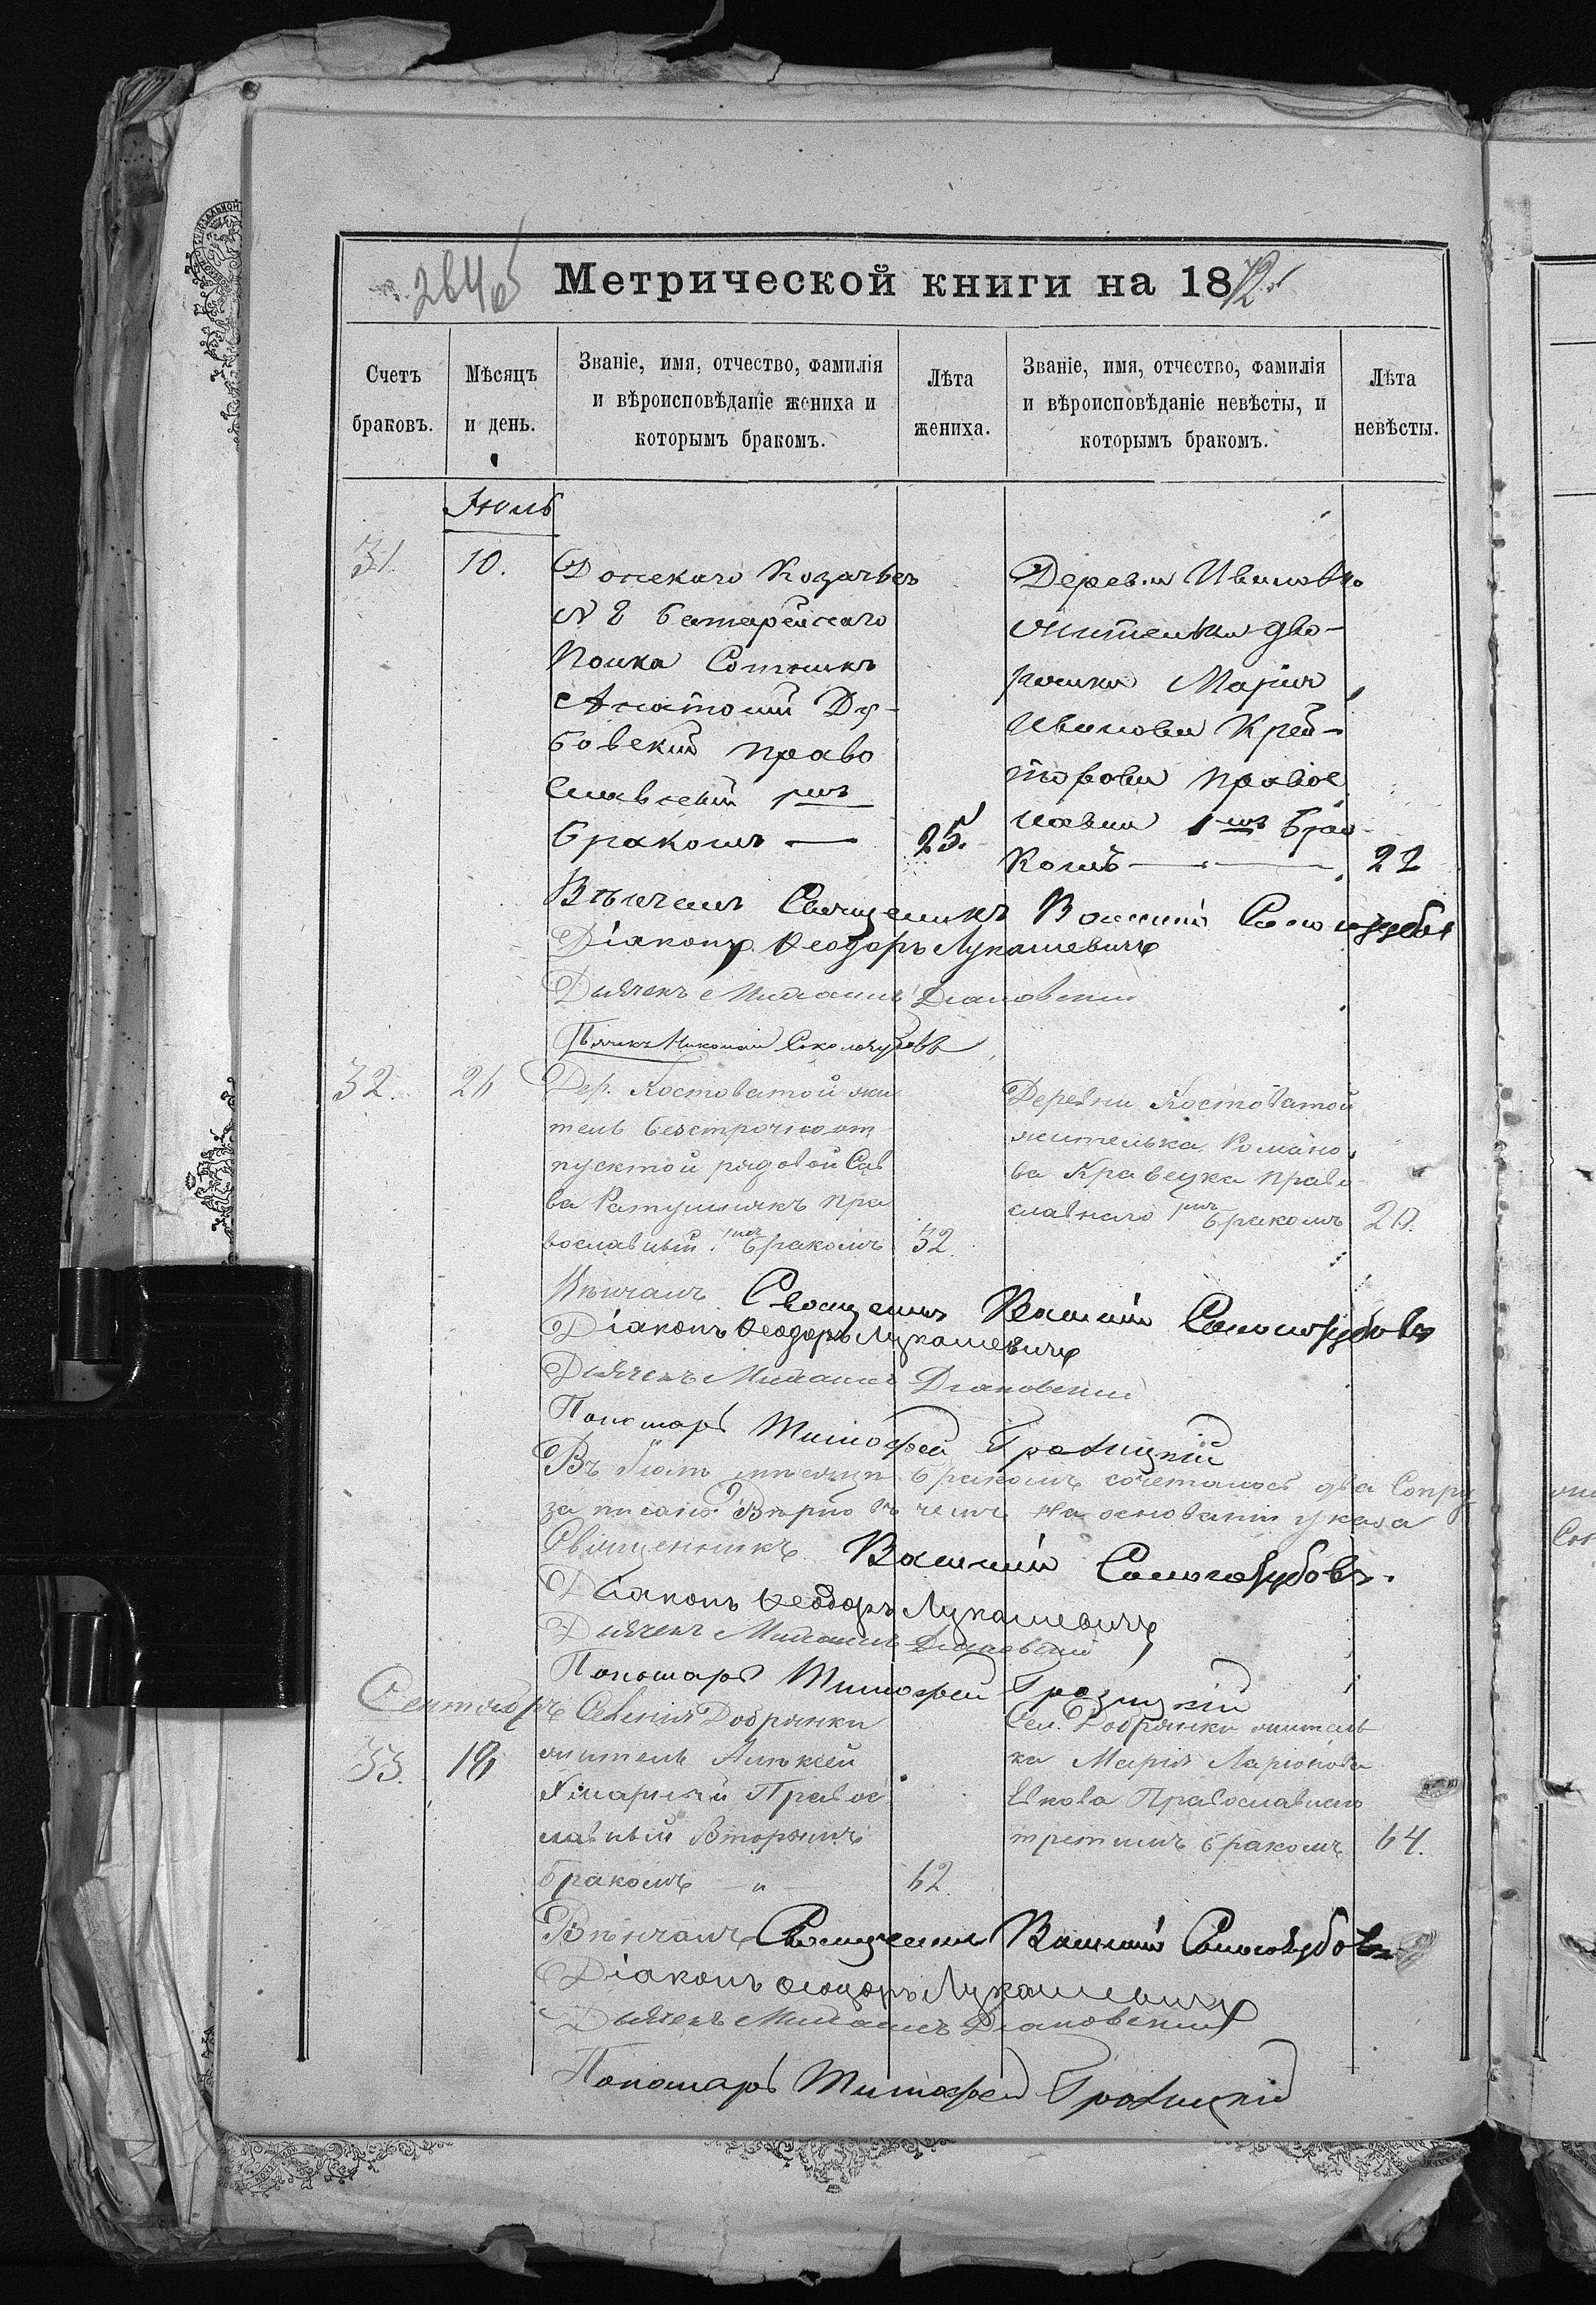 Метрической книги на 1872
Счетъ браковъ.
Мѣсяцъ и день.
Званіе, имя, отчество, фамилія и вѣроисповѣданіе жениха и которымъ бракомъ.
Лѣта жениха.
Званіе, имя, отчество, фамилія и вѣроисповѣданіе невѣсты, и которымъ бракомъ.
Лѣта невѣсты.
Іюль
31.
10.
Донскаго Козачьего
№ 2 батарейскаго
Полка Сотникъ
Анатолій Ду-
бовскій право
славный 1мъ
бракомъ —
25.
Деревни Ивановки
жительки дво-
рянки Марія
Иванова Крей-
торова правос
лавная 1мъ бра
комъ
22
Вѣнчалъ Священникъ Василій Сологубовъ
Діаконъ Ѳеодоръ Лукашевичъ
Дьячекъ Михаилъ Диаковскій
32.
26
Дер. Костоватой жи
тель безсрочноот
пускной рядовой Сав
ва Ратушнякъ пра
вославный 1мъ бракомъ
32.
Деревни Костоватой
жителька Романо
ва Кравецка право
славнаго 1мъ бракомъ
20.
Вѣнчалъ Священникъ Василій Сологубовъ
Діаконъ Ѳеодоръ Лукашевичъ
Дьячекъ Михаилъ Диаковскій
Пономарь Тимофей Гродицкій
Въ Іюлѣ мѣсяцѣ бракомъ сочеталось два Супру
записано вѣрно въ чемъ на основаніи указа
Священникъ Василій Сологубовъ.
Діаконъ Ѳеодоръ Лукашевичъ
Дьячекъ Михаилъ Диаковскій
Пономарь Тимофей Гродицкій
Сентябрь
33.
Селенія Добрянки
житель Алексѣй
Правос
лавный Вторымъ
бракомъ — " —
62.
Сел. Добрянки житель
ка Марія Ларіонова
Православнаго
третимъ бракомъ
64.
Вѣнчалъ Священникъ Василій Сологубовъ
Діаконъ Ѳеодоръ Лукашевичъ
Дьячекъ Михаилъ Диаковскій
Пономарь Тимофей Гродицкій